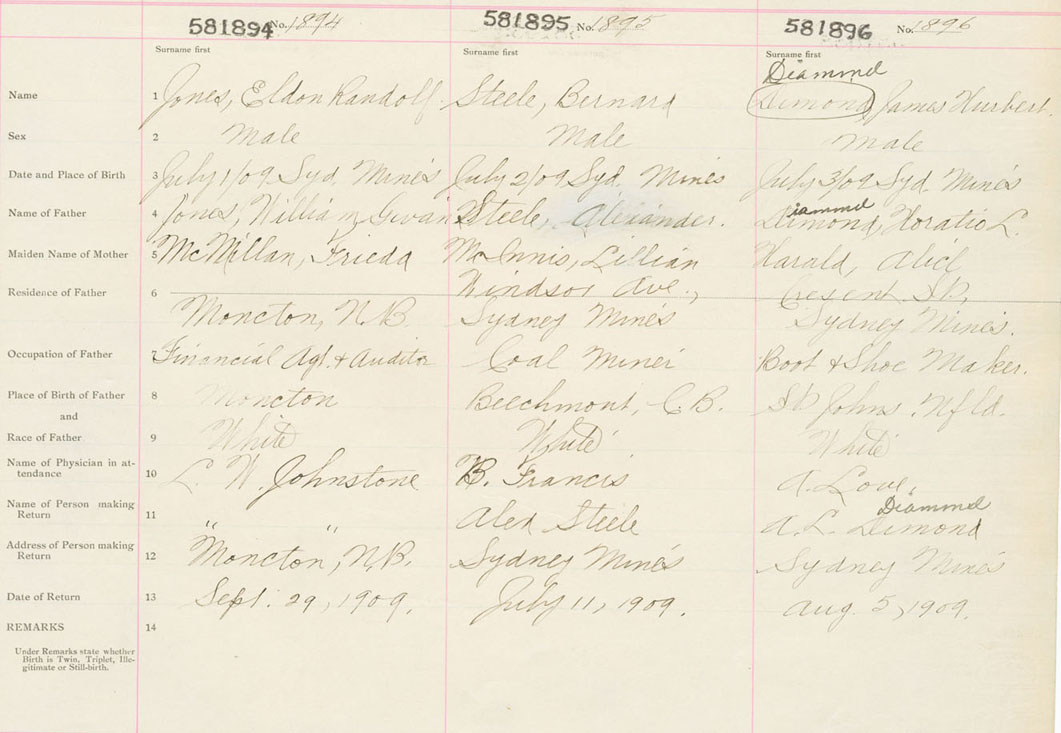 581894 No. 1894 581895 No. 1895 581896 No. 1896
Surname first Surname first Surname first
Diamond
Name 1 Jones, Eldon Randolf Steele, Bernard Dimond, James Hurbert.
Sex 2 Male Male Male
Date and Place of Birth 3 July 1/09 Syd Mines July 2/09 Syd. Mines July 3/09 Syd. Mines
Diamond
Name of Father 4 Jones, William Steele, Alexander. Dimond, Horatio L.
Maiden Name of Mother 5 McMillan, Frieda McInnis, Lillian Harald, Alice
Windsor Ave., Cresent St,
Residence of Father 6 Moncton, N.B. Sydney Mines Sydney Mines.
Occupation of Father 7 Financial Agt. & Auditor Coal Miner Boot & Shoe Maker.
Place of Birth of Father 8 Moncton Beechmont, C.B. St Johns, Nfld.
and
Race of Father 9 White White White
Name of Physician in at-
tendance 10 L. W. Johnstone B. Francis A. Love,
Diamond
Name of Person making
Return 11 " " Alex Steele A. L. Dimond
Address of Person making
Return 12 Moncton, N.B. Sydney Mines Sydney Mines
Date of Return 13 Sept. 29, 1909. July 11, 1909. Aug 5, 1909.
REMARKS 14
Under Remarks state whether
Birth is Twin, Triplet, Ille-
gitimate or Still-birth.